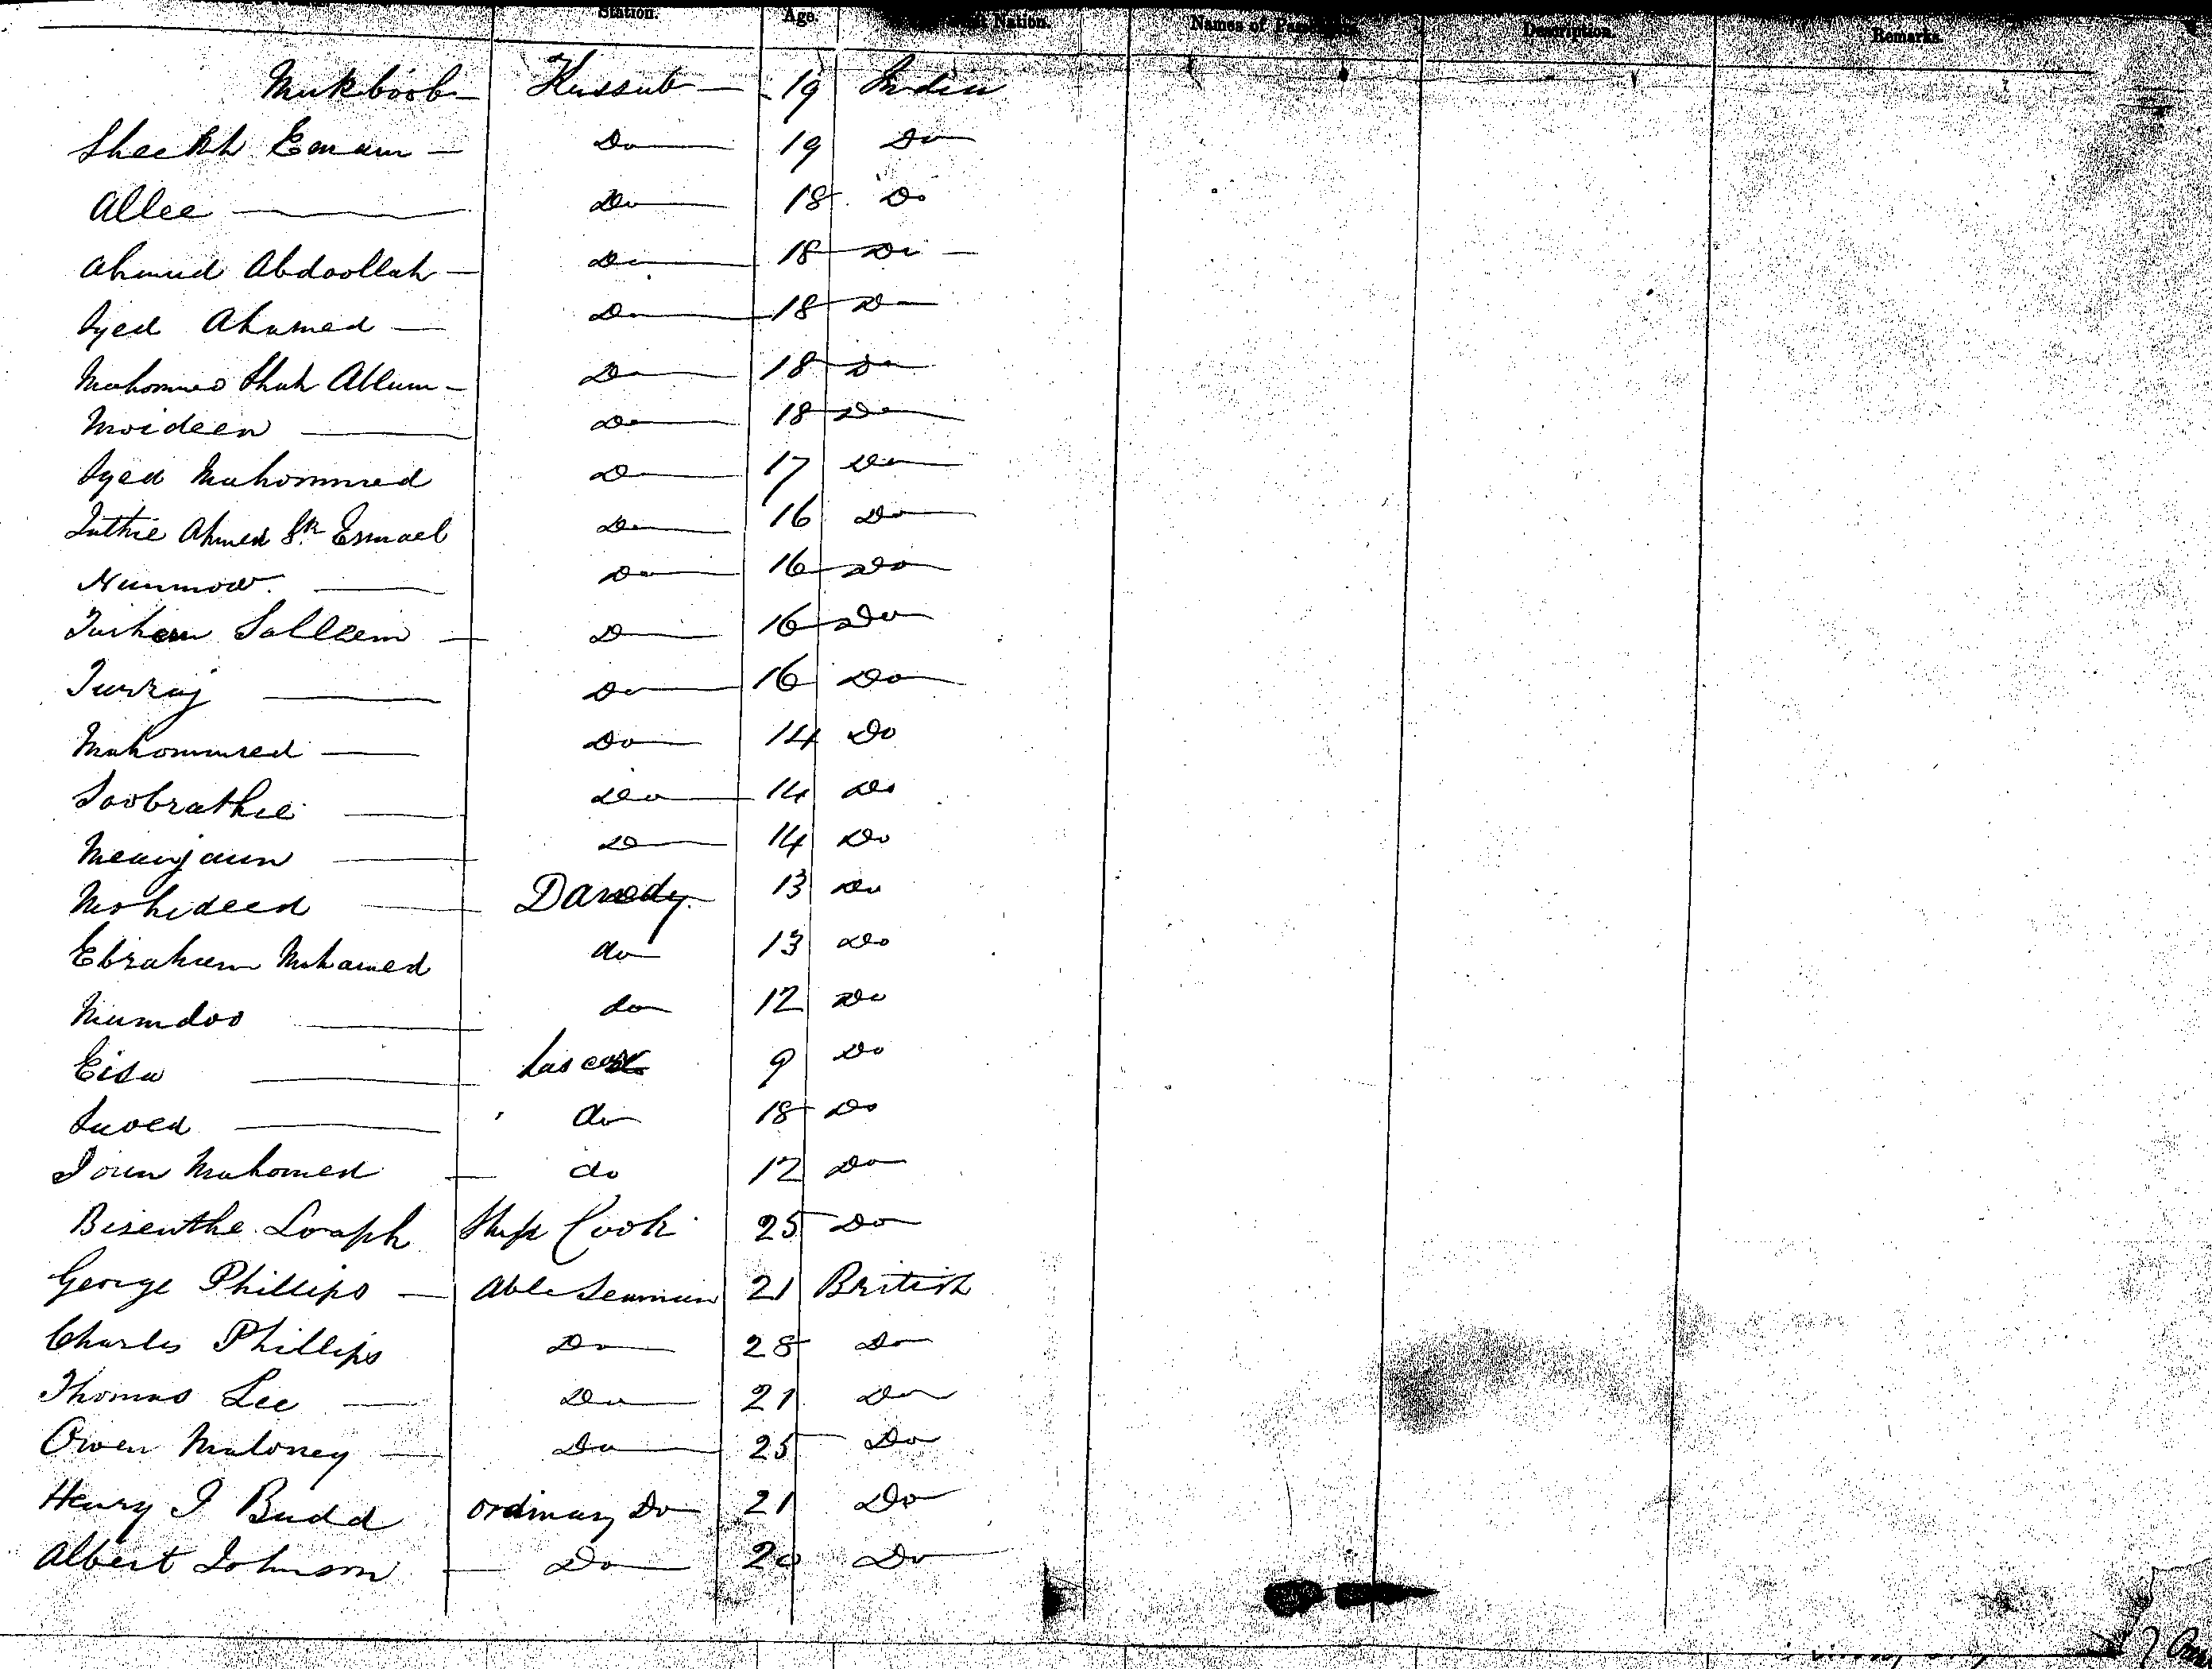 Station. Age. Nation. Names of Passengers. Description. Remarks.
Mukboob Kussub 19 India
Sheekh Emam Do 19 Do
Allee Do 18 Do
Ahmud Abdoollah Do 18 Do
Syed Ahamed Do 18 Do
Mahommed Shah Allum Do 18 Do
Moideen Do 18 Do
Syed Mahommed Do 17 Do
Ahmed Sk Esmael Do 16 Do
Nunmow Do 16 Do
Salleem Do 16 Do
Do 16 Do
Mahommed Do 14 Do
Soobrathie Do 14 Do
Meaujaun Do 14 Do
Mohideen 13 Do
Ebrahim Mohamed do 13 Do
Mumdoo do 12 Do
Eisa Lascar 9 Do
do 18 Do
Mahomed do 12 Do
Ships Cook 25 Do
George Phillips Able Seaman 21 British
Charles Phillips Do 28 Do
Thomas Lee Do 21 Do
Owen Maloney Do 25 Do
Henry J Budd ordinary Do 21 Do
Albert Johnson Do 20 Do